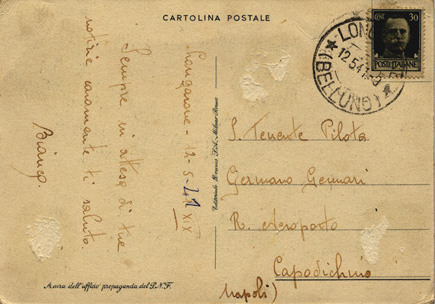 CARTOLINA POSTALE
Longarone - 12-5-41 XIX
Sempre in attesa di tue
notizie caramente ti saluto.
Bianca.
CENT. 30
POSTE ITALIANE
12.5.41
(BELLUNO)
S. Tenente Pilota
Germano Gennari
R. Aeroporto
Capodichino
Napoli)
A cura dell'ufficio propaganda del P.N.F.